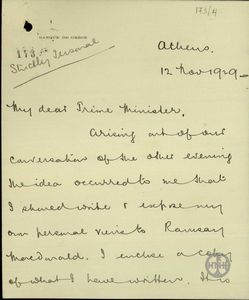 173/4
BANQUE DE GRÈCE
173
Strictly Personal
Athens.
12 Nov 1929 -
My dear Prime Minister.
Arising out of our
conversation of the other evening
the idea occurred to me that
I should write & expose my
own personal views to Ramsay
MacDonald. I enclose a copy
of what I have written. It is